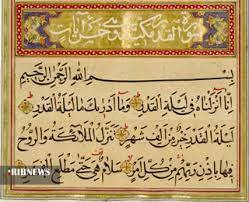 سورة القدر
بسم الله الرحمن الرحیم
انا انزلناه فی لیلة القدر وما ادریك ما لیلة القدر
لیلة القدر خیر من الف شهر تنزل الملائكة والروح
فیها باذن ربهم من كل امر سلام هی حتی مطلع الفجر
IRIBNEWS